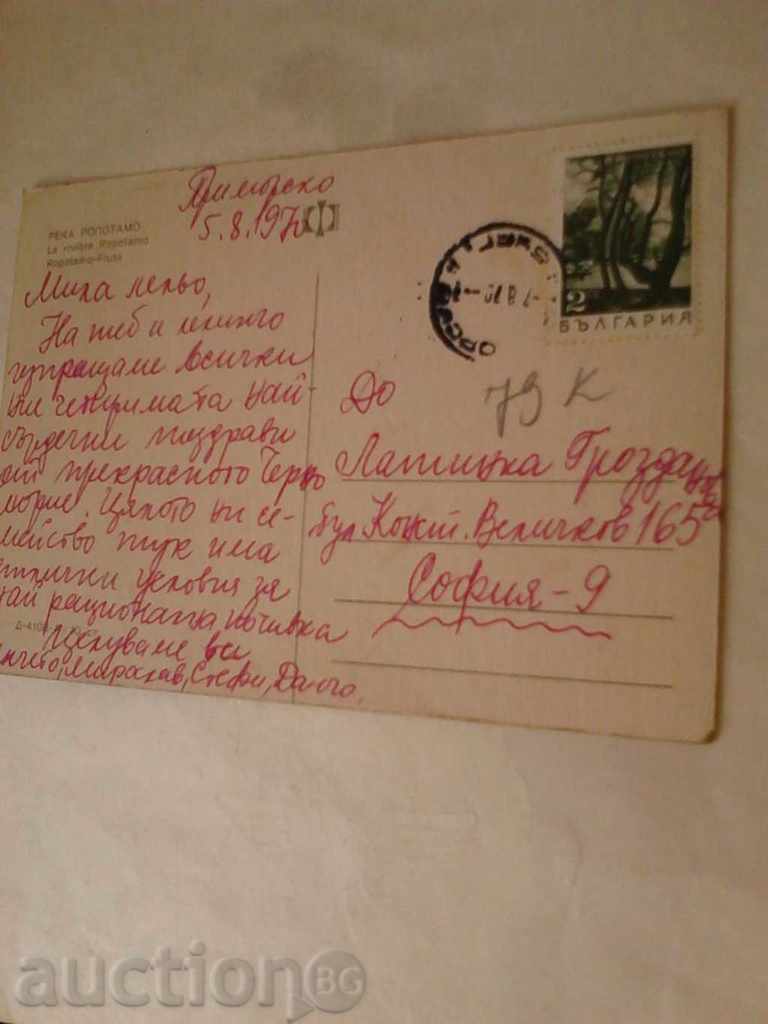 Приморско
5.8.1970
РЕКА РОПОТАМО
La rivière Ropotamo
Ropotamo-Fluss
Мила лельо,
На теб и лелинчо
изпращаме всички
ни четиримата най-
сърдечни поздрави
от прекрасното Черно
море. Цялото ни се-
мейство тук има
отлични условия за
най рационална почивка
Целуваме ви
Мирослав, Стефи, Данчо.
Д-4108
2
БЪЛГАРИЯ
7.8.70
79 к
До
Латинка Грозданова
бул Конст. Величков 165
София-9
auction BG